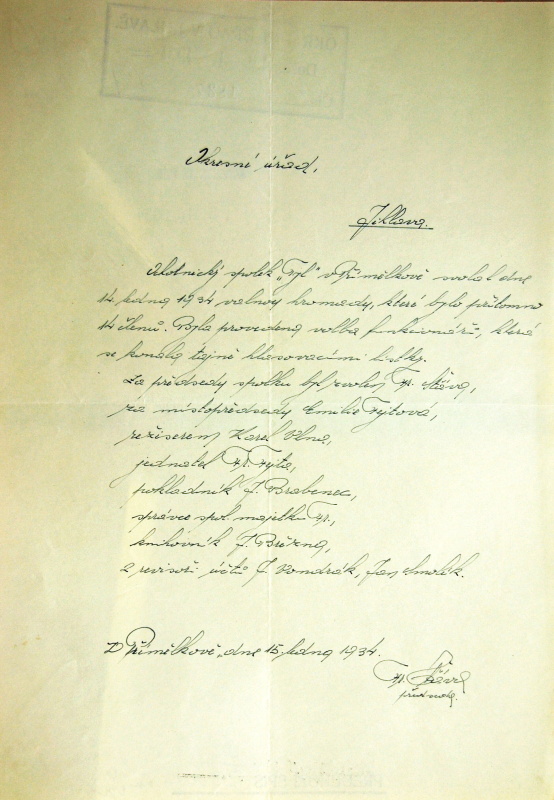 Okresní úřad,
Jihlava.
Ochotnický spolek „Tyl" v Přímělkově svolal dne
14. ledna 1934 valnou hromady, které bylo přítomno
14 členů. Byla provedena volba funkcionářů, která
se konala tajně hlasovacími lístky.
Za předsedy spolku byl zvolen Fr. Šťáva,
za místopředsedy Emilie Fytova,
režiserem Karel Vlna,
jednatel Fr. Fyta,
pokladník J. Brabenec,
správce spol. majetku Fr.,
knihovník J. Března,
a revisoři účtů J. Vondrák, Jan Smolík.
V Přímělkově, dne 15. ledna 1934.
Fr. Šťáva
předseda.